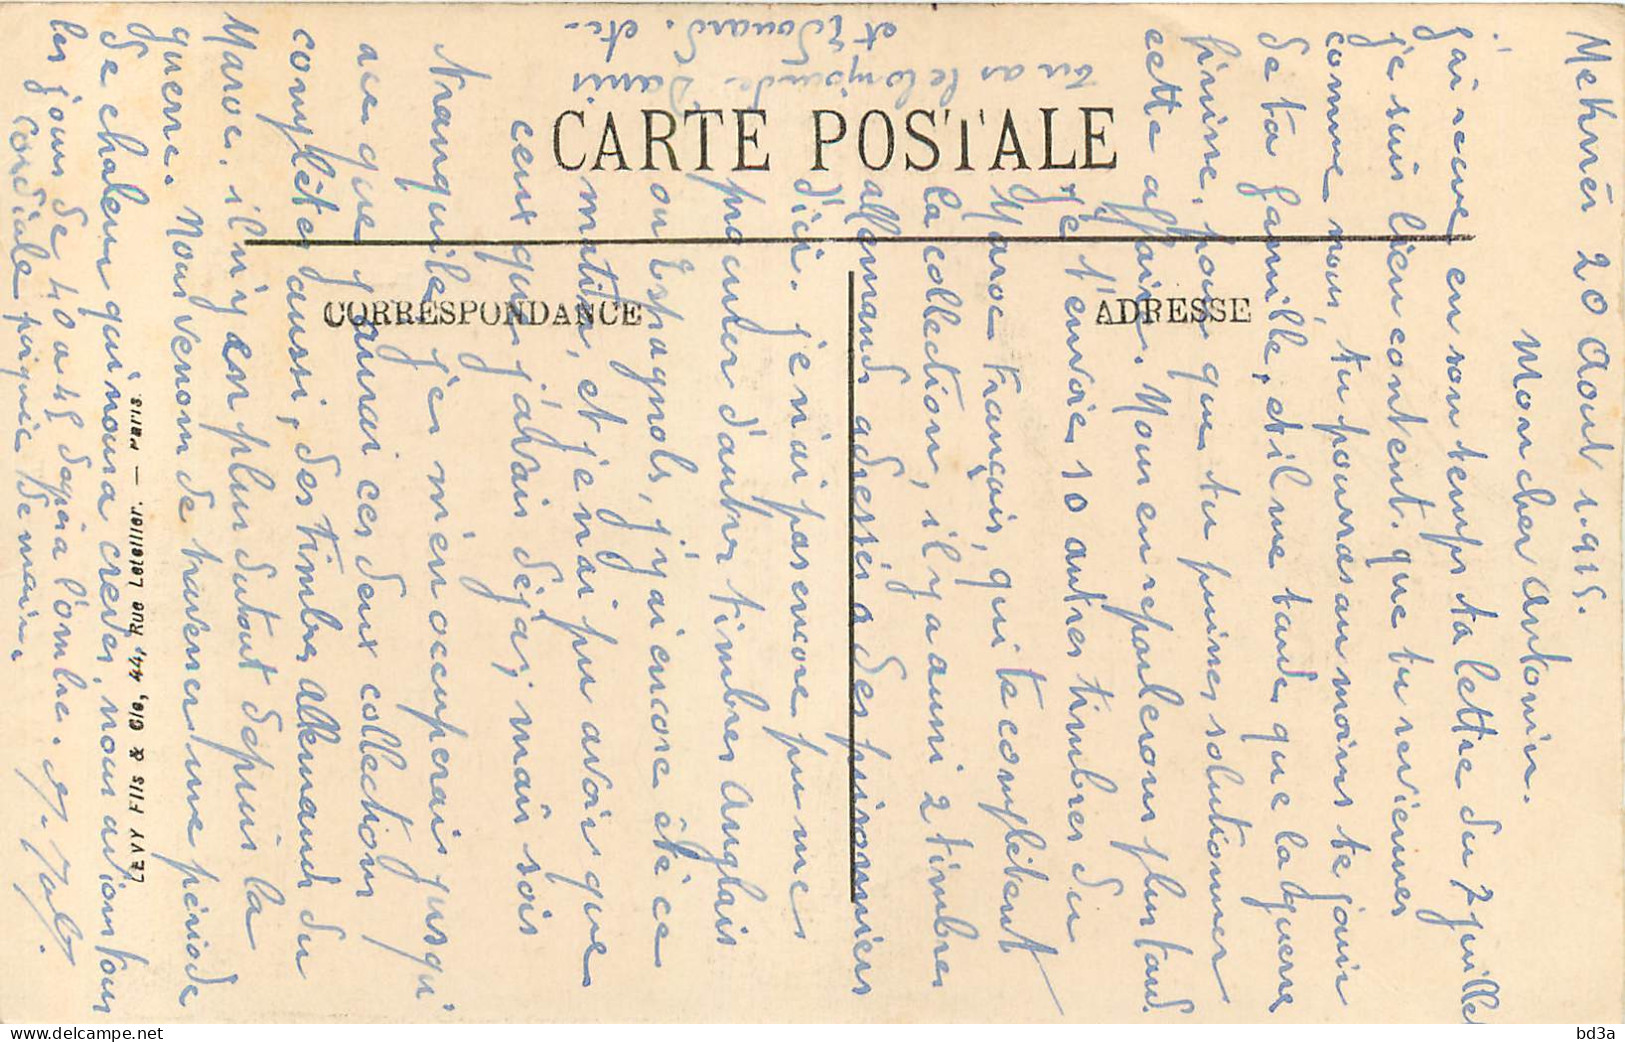 CARTE POSTALE
CORRESPONDANCE
ADRESSE
LEVY FILS & Cie, 44, Rue Letellier. — PARIS.
Meknès 20 Aout 1.915.
Mon cher Antonin.
j'ai reçue en son temps ta lettre du 7 juillet
je suis bien content. que tu reviennes
comme nous, tu pourras au moins te jouir
de ta famille, et il me tarde que la guerre
finisse, pour que tu puisses solutionner
cette affaire. Nous en reparlerons plus tard.
Je t'envoie 10 autres timbres du
Maroc Français, qui te complètent
la collection, il y a aussi 2 timbres
allemands adressés a des prisonniers
d'ici. je n'ai pas encore pu me
procurer d'autres timbres Anglais
ou Espagnols, j'y ai encore été ce
matin, et je n'ai pu avoir que
ceux que j'avais déjà, mais sois
tranquile je m'en occuperais jusqu'
ace que j'aurai ces deux collections
complètes aussi, des timbres allemands du
Maroc, il n'y en plus surtout depuis la
guerre. Nous venons de traverser une période
de chaleur qui nous a crevés, nous avions tous
les jours de 40 a 45 degrés a l'ombre.
Cordiale poignée de mains
tu as le bonjour de Davis
et Edouard. etc.